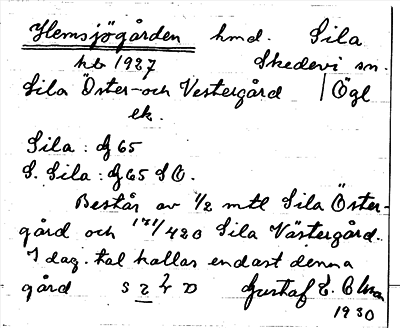 Hemsjögården hmd. Sila
hb 1927 Skedevi sn.
Sila Öster- och Vestergård Ögl
ek.
Sila: dJ 65
S. Sila: dJ 65 SO.
Består av 1/2 mtl Sila Öster-
gård och 171/420 Sila Västergård.
I dag. tal kallas endast denna
gård Gustaf E.
1930